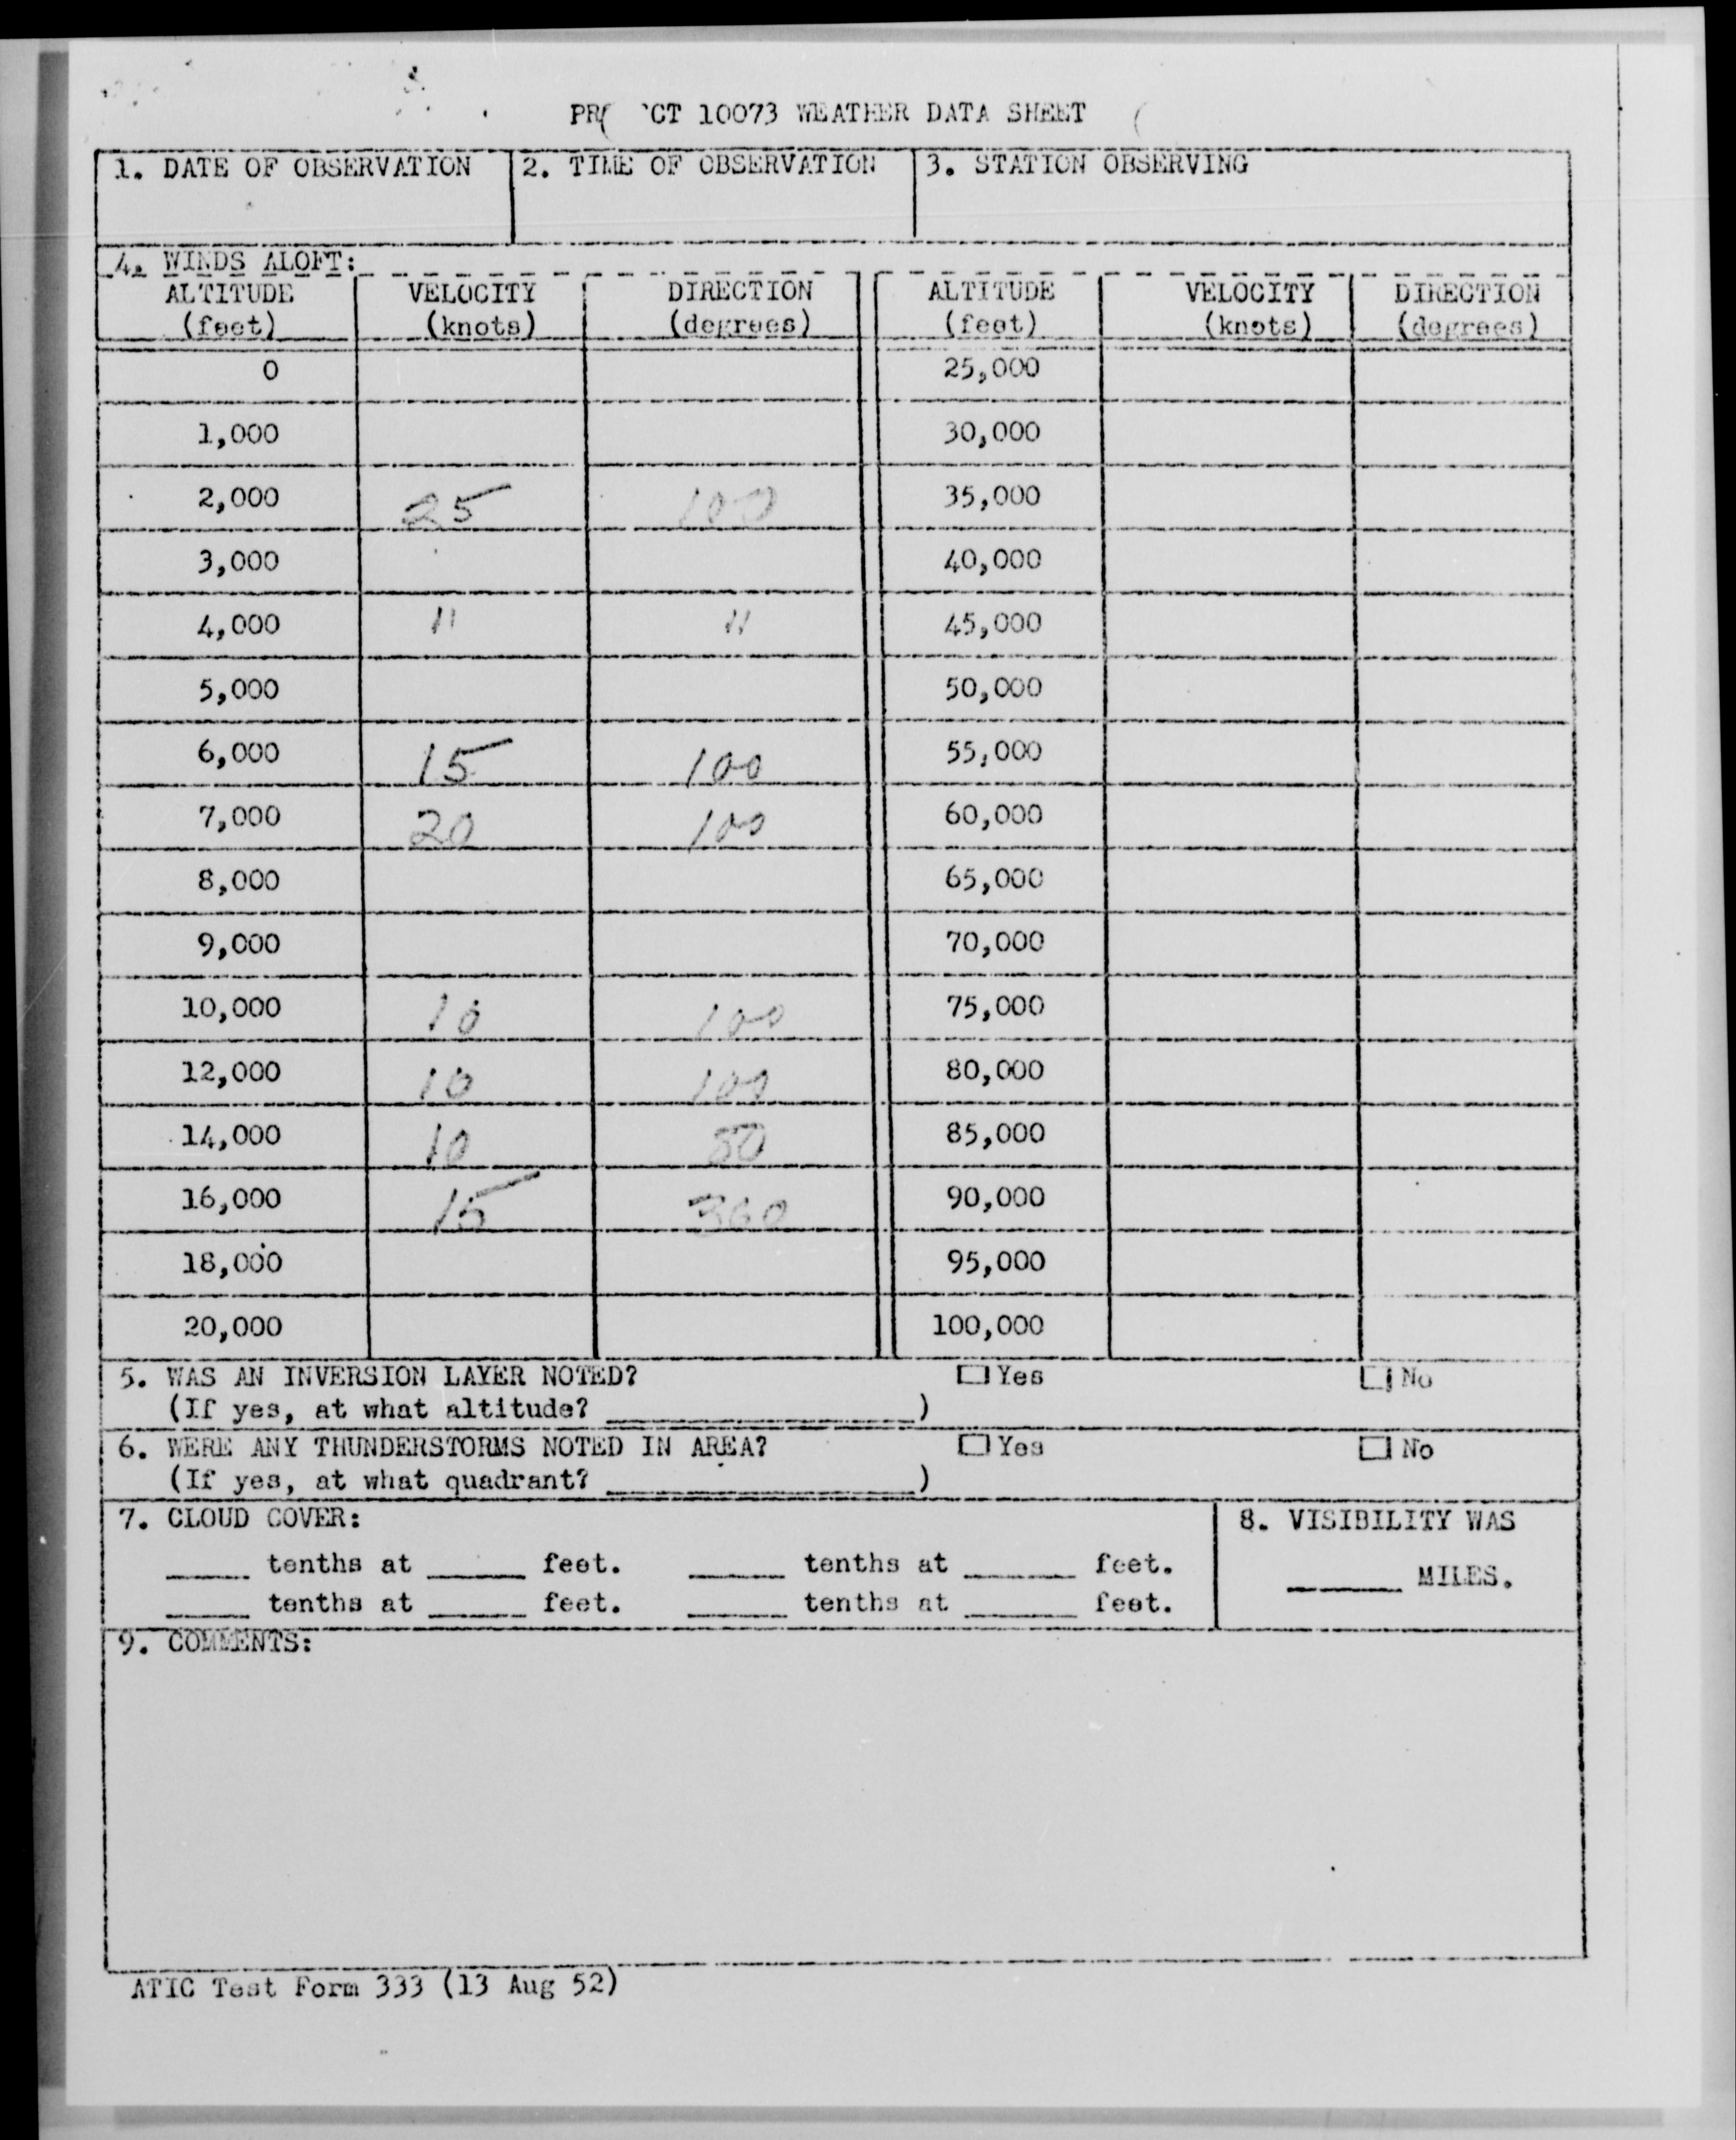 PR( 'CT 10073 WEATHER DATA SHEET
1. DATE OF OBSERVATION 2. TIME OF OBSERVATION 3. STATION OBSERVING
4. WINDS ALOFT:
ALTITUDE VELOCITY DIRECTION ALTITUDE VELOCITY DIRECTION
(feet) (knots) (degrees) (feet) (knots) (degrees)
0 25,000
1,000 30,000
2,000 25 100 35,000
3,000 40,000
4,000 " " 45,000
5,000 50,000
6,000 15 100 55,000
7,000 20 100 60,000
8,000 65,000
9,000 70,000
10,000 10 100 75,000
12,000 10 100 80,000
14,000 10 85,000
16,000 15 360 90,000
18,000 95,000
20,000 100,000
5. WAS AN INVERSION LAYER NOTED? Yes No
(If yes, at what altitude? )
6. WERE ANY THUNDERSTORMS NOTED IN AREA? Yes No
(If yes, at what quadrant? )
7. CLOUD COVER: 8. VISIBILITY WAS
tenths at feet. tenths at feet. MILES.
tenths at feet. tenths at feet.
9. COMMENTS:
ATIC Test Form 333 (13 Aug 52)